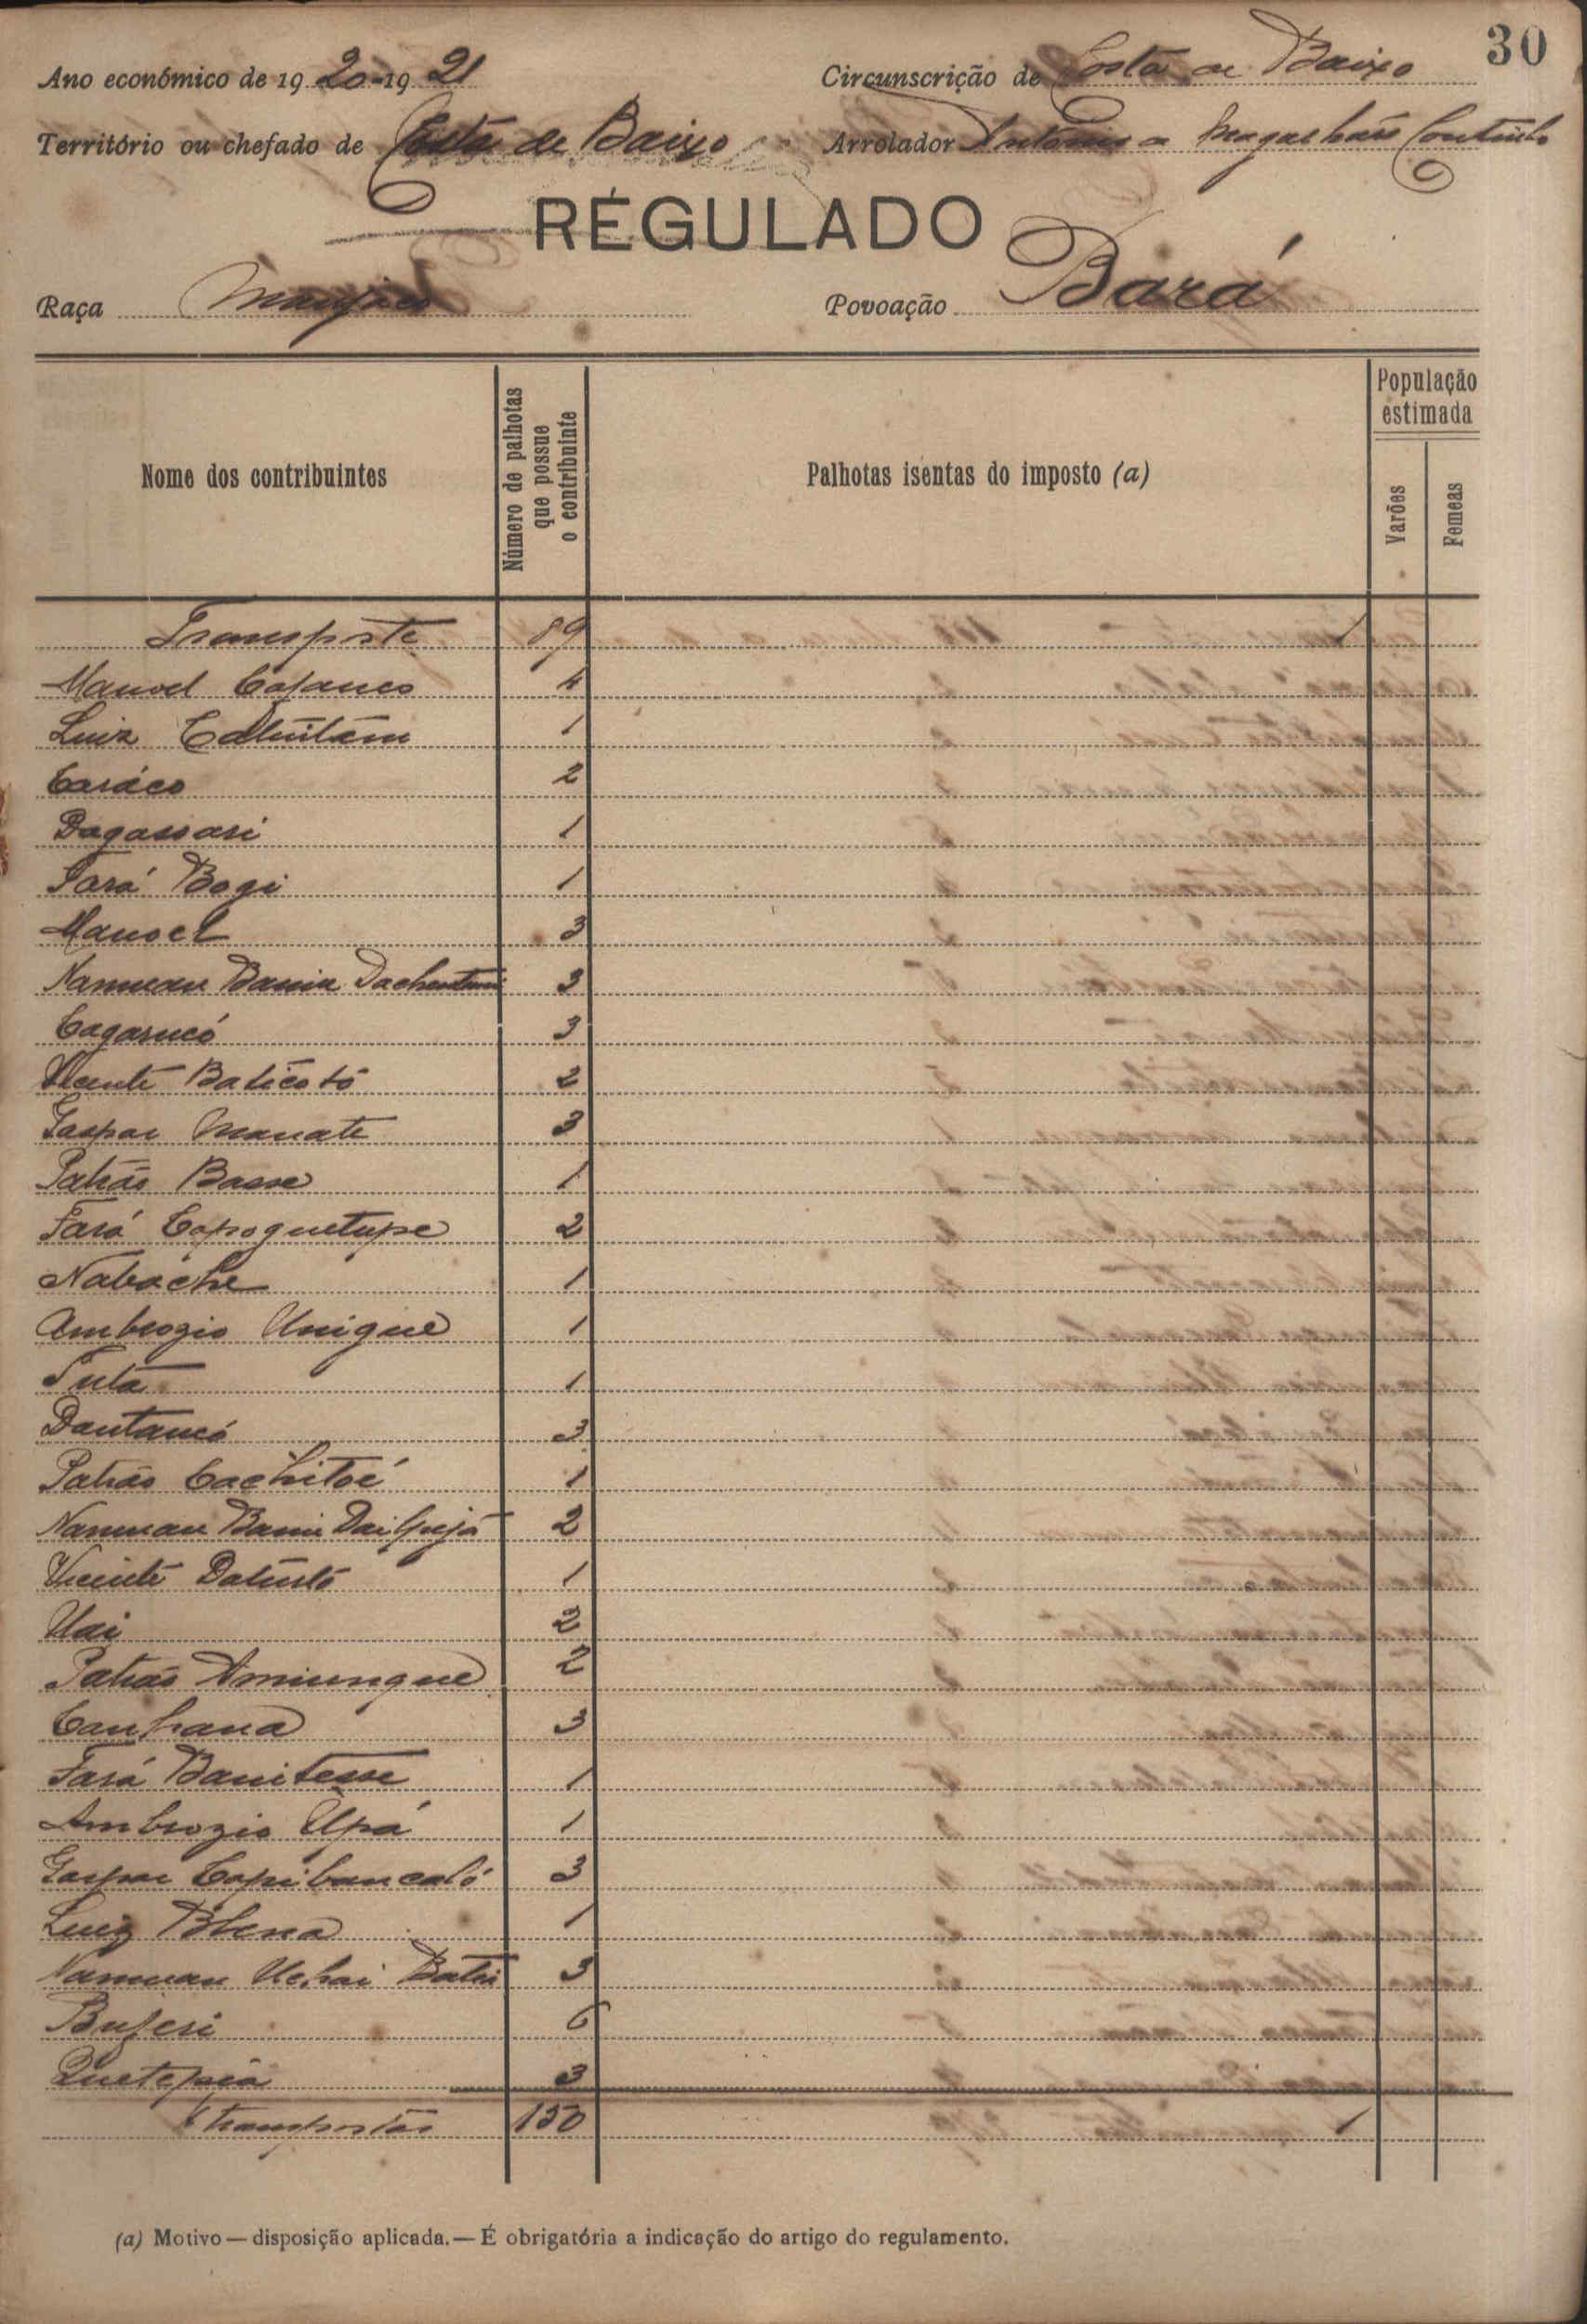 30
Ano económico de 1920-1921 Circunscrição de Costa de Baixo
Território ou chefado de Costa de Baixo Arrolador António a Magalhães Coutinho
REGULADO
Raça Manjaco Povoação Bará
Nome dos contribuintes
Número de palhotas que possue o contribuinte
Palhotas isentas do imposto (a)
População estimada
Varões
Femeas
Transporte 89 1
Manoel Cajanco 4
Luiz 1
Caráco 2
Dagassari 1
Tará Bogi 1
Manoel 3
Namuan Bania 3
Cagarucó 3
Vicente Baticotó 2
Gaspar Manate 3
Patrão Basse 1
Tará Capoguetupe 2
Nabáche 1
Ambrozio Unique 1
Juta 1
Dantancó 3
Patrão Cachitoé 1
Namuan 2
Vicente 1
Uai 2
Patrão Amiungue 2
Canhana 3
Tará Banitesse 1
Ambrozio Upá 1
Gaspar Capibancaló 3
Luiz Blena 1
Namuan Uchai 3
Bujeri 6
Quetepiá 3
150 1
(a) Motivo — disposição aplicada. — É obrigatória a indicação do artigo do regulamento.